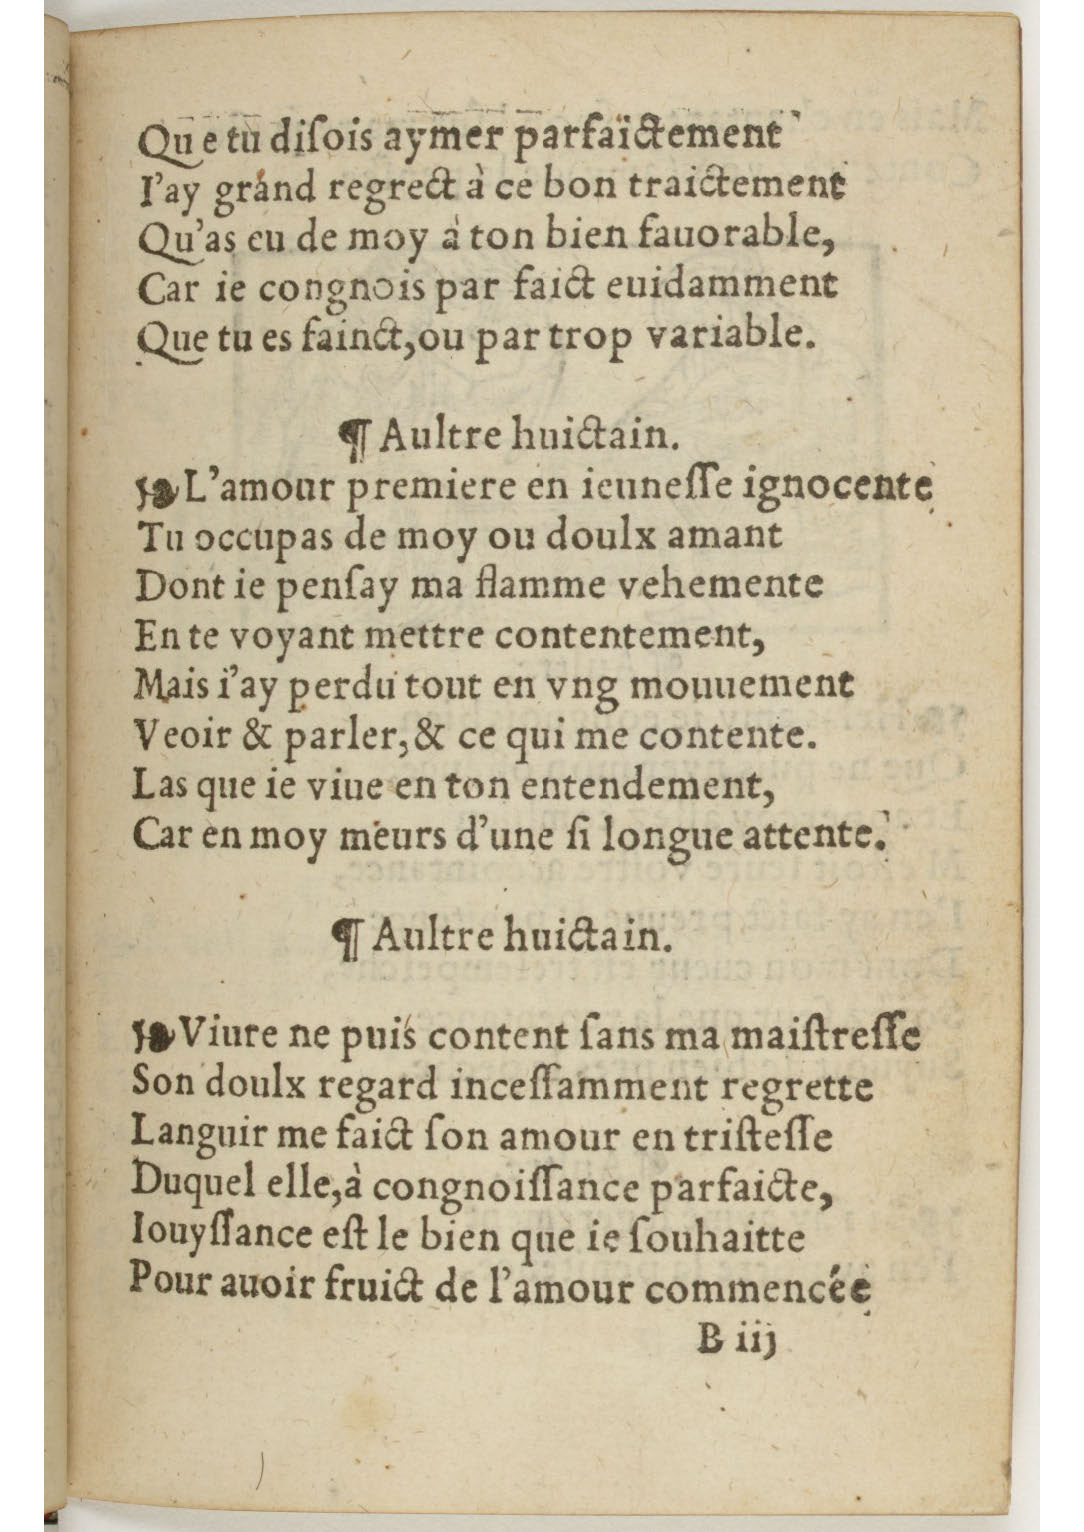 Que tu diſois aymer parfaictement
I'ay grand regrect à ce bon traictement
Qu'as eu de moy à ton bien fauorable,
Car ie congnois par faict euidamment
Que tu es fainct, ou par trop variable.
¶ Aultre huictain.
❧ L'amour premiere en ieuneſſe ignocente
Tu occupas de moy ou doulx amant
Dont ie penſay ma flamme vehemente
En te voyant mettre contentement,
Mais i'ay perdu tout en vng mouuement
Veoir & parler, & ce qui me contente.
Las que ie viue en ton entendement,
Car en moy meurs d'une ſi longue attente.
¶ Aultre huictain.
❧ Viure ne puis content ſans ma maiſtreſſe
Son doulx regard inceſſamment regrette
Languir me faict ſon amour en triſteſſe
Duquel elle, à congnoiſſance parfaicte,
Iouyſſance eſt le bien que ie ſouhaitte
Pour auoir fruict de l'amour commencée
B iij